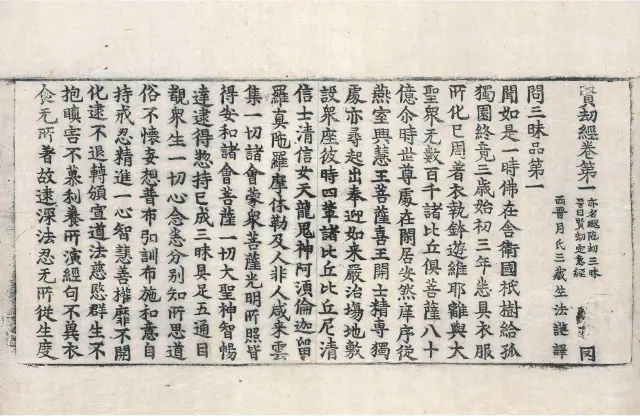 賢劫經卷第一
亦名颰陀劫三昧
晉曰賢劫定意經
西晉月氏三藏生法護譯
問三昧品第一
聞如是一時佛在舍衛國祇樹給孤
獨園終竟三歲始初三年悉具衣服
所化已周著衣執鉢遊維耶離與大
聖衆无數百千諸比丘俱菩薩八十
億尒時世尊處在閑居安然庠序從
燕室興慧王菩薩喜王開士精專獨
處亦尋起出奉迎如来嚴治塲地敷
設衆座彼時四輩諸比丘比丘尼清
信士清信女天龍鬼神阿湏倫迦留
羅真陁羅摩休勒及人非人咸来雲
集一切諸會蒙衆菩薩光明所照皆
得安和諸會菩薩一切大聖神智暢
達逮得惣持已成三昧具足五通目
覩衆生一切心念悉分別知所思道
俗不懷妄想普布弘訓布施和意自
持戒忍精進一心智慧善權靡不開
化逮不退轉頒宣道法慈愍群生不
抱瞋害不慕利養所演經句不兾衣
食无所著故逮深法忍无所從生度